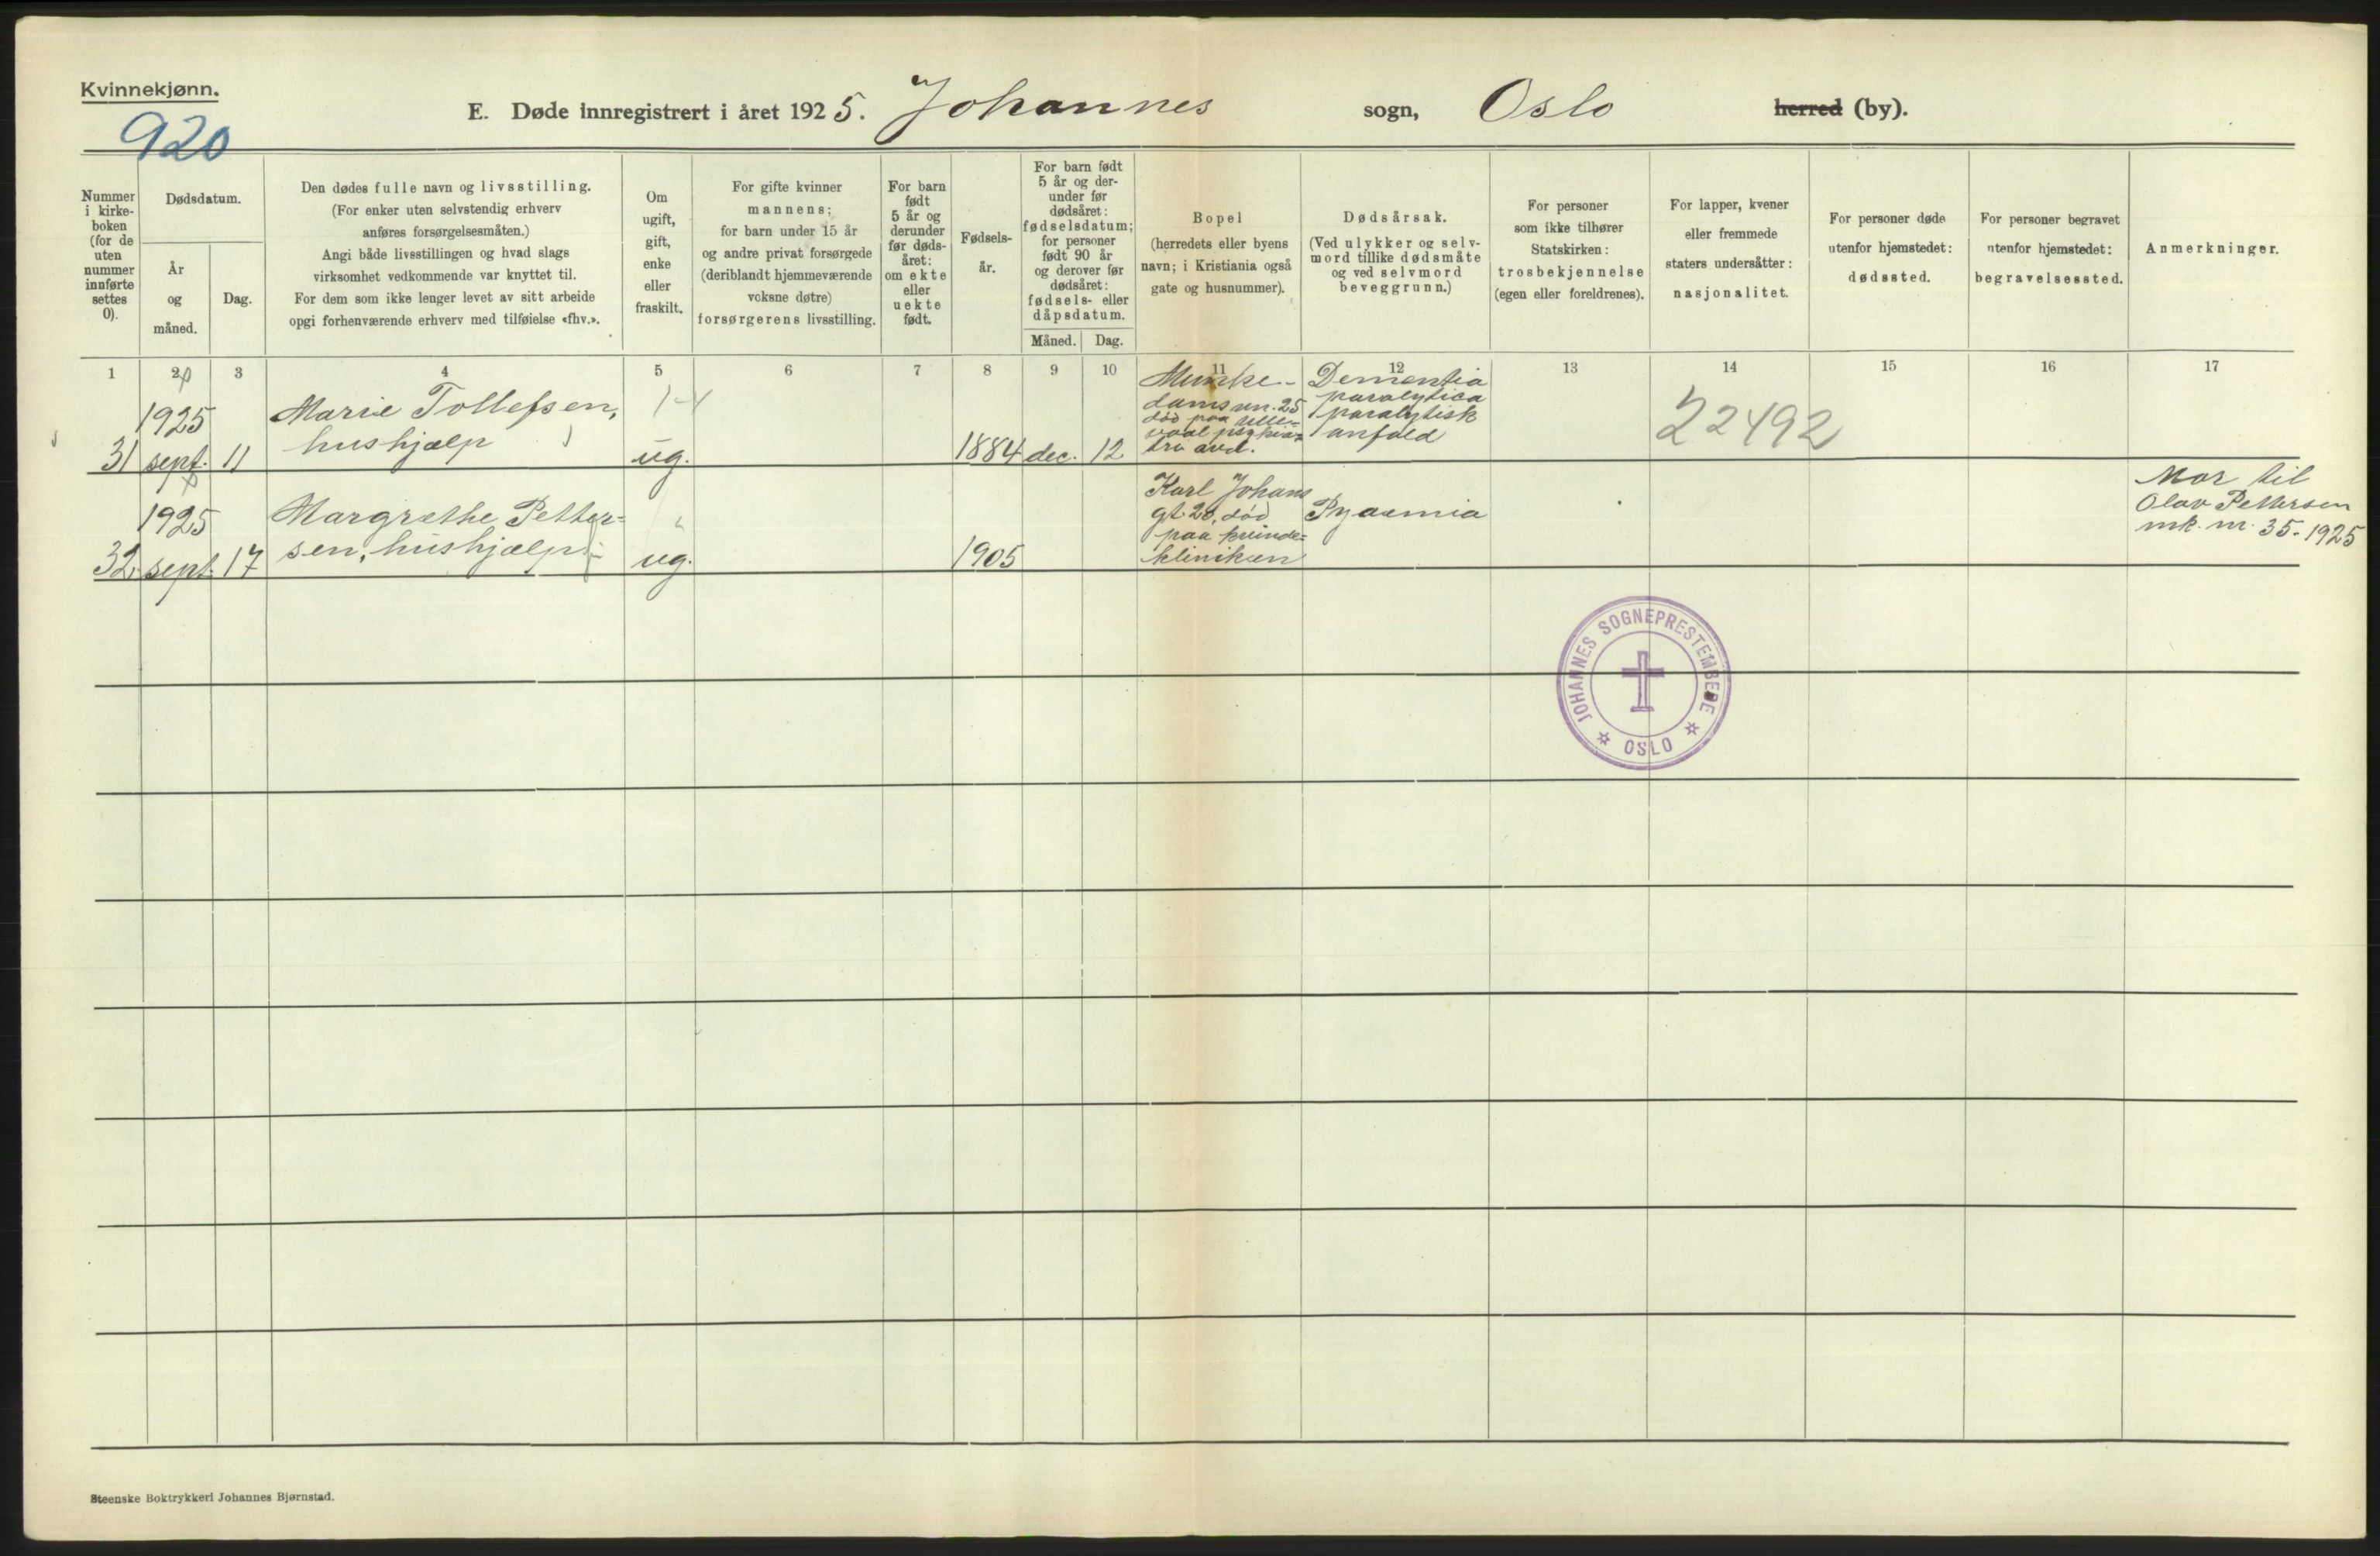 Kvinnekjønn.
920
E. Døde innregistrert i året 1925. Johannes sogn, Oslo herred (by).
Nummer
i kirke-
boken
(for de
uten
nummer
innførte
settes
0).
Dødsdatum.
År
og
måned.
Dag.
Den dødes fulle navn og livsstilling.
(For enker uten selvstendig erhverv
anføres forsørgelsesmåten.)
Angi både livsstillingen og hvad slags
virksomhet vedkommende var knyttet til.
For dem som ikke lenger levet av sitt arbeide
opgi forhenværende erhverv med tilføielse «fhv.».
Om
ugift,
gift,
enke
eller
fraskilt.
For gifte kvinner
mannens;
for barn under 15 år
og andre privat forsørgede
(deriblandt hjemmeværende
voksne døtre)
forsørgerens livsstilling.
For barn
født
5 år og
derunder
før døds-
året:
om ekte
eller
uekte
født.
Fødsels-
år.
For barn født
5 år og der-
under før
dødsåret:
fødselsdatum;
for personer
født 90 år
og derover før
dødsåret:
fødsels- eller
dåpsdatum.
Måned.
Dag.
Bopel
(herredets eller byens
navn; i Kristiania også
gate og husnummer).
Dødsårsak.
(Ved ulykker og selv-
mord tillike dødsmåte
og ved selvmord
beveggrunn.)
For personer
som ikke tilhører
Statskirken:
trosbekjennelse
(egen eller foreldrenes).
For lapper, kvener
eller fremmede
staters undersåtter:
nasjonalitet.
For personer døde
utenfor hjemstedet:
dødssted.
For personer begravet
utenfor hjemstedet:
begravelsessted.
Anmerkninger.
1 2 3 4 5 6 7 8 9 10 11 12 13 14 15 16 17
31
1925
sept. 11
Marie Tollefsen,
hushjælp
1-4
ug.
1884 dec. 12
Munke-
damsvn. 25
død paa Ulle-
vaal psykia-
tri avd.
Dementia
paralytica
paralytisk
anfald
22492
32
1925
sept. 17
Margrethe Petter-
sen, hushjælp
ug.
1905
Karl Johans
gt. 20, død
paa kvinde-
kliniken
Pyaemia
Mor til
Olav Pettersen
mk. nr. 35-1925
JOHANNES SOGNEPRESTEMBEDE
OSLO
Steenske Boktrykkeri Johannes Bjørnstad.